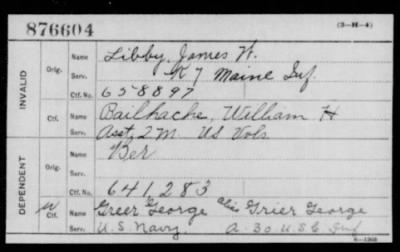 876604
(3-H-4)
INVALID
Orig. Name Libby, James W.
Serv. K 7 Maine Inf.
Ctf. No. 658897
Ctf. Name Bailhache, William H
Serv. Asst. Q M US Vols
DEPENDENT
Orig. Name Ber
Serv.
Ctf. No. 641,283
W Ctf. Name Greer George alias Grier George
Serv. U.S. Navy. A. 30 U S C Inf